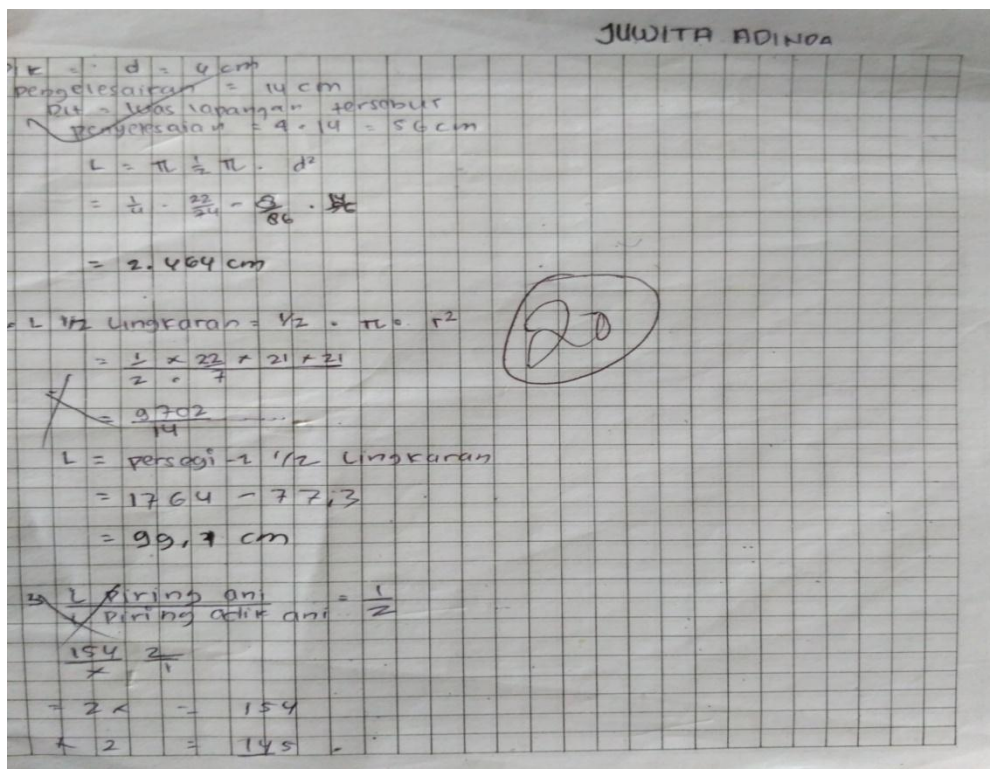 JUWITA ADINDA
Dik = d = 4 cm
pengelesaikan = 14 cm
Dit = luas lapangan tersebut
penyelesaian = 4 . 14 = 56 cm
L = π ½ π . d²
= ¼ . 22/24 - 8/86 .
= 2.464 cm
20
. L ½ Lingkaran = ½ . π . r²
= 1/2 × 22/7 × 21 × 21
= 9702/14
L = persegi - L ½ Lingkaran
= 1764 - 77,3
= 99,7 cm
3. L piring ani / L piring adik ani = 1/2
154/x 2/1
= 2x = 154
x 2 = 145